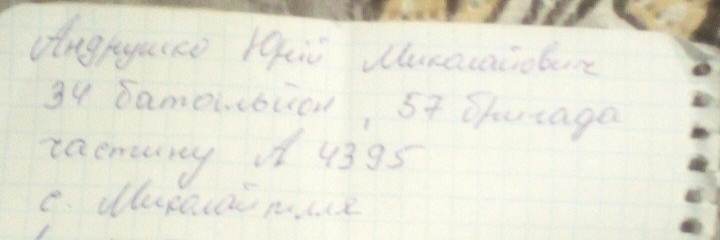 Андрушко Юрій Миколайович
34 батальйон, 57 бригада
частину А 4395
с. Миколайпілля